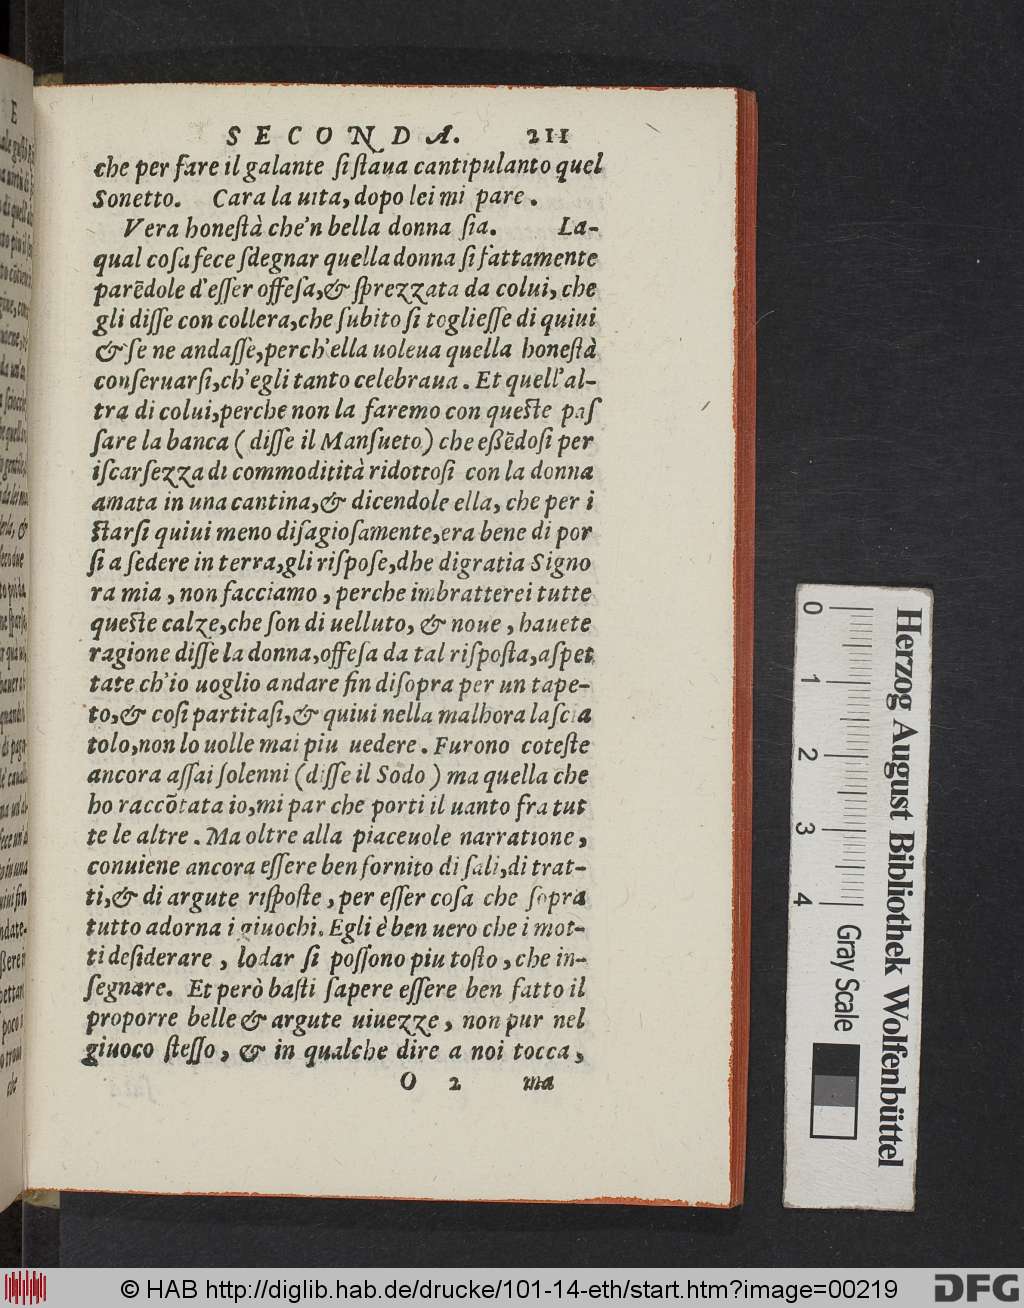 SECONDA. 211
che per fare il galante ſi ſtaua cantipulanto quel
Sonetto. Cara la uita, dopo lei mi pare.
Vera honeſtà che'n bella donna ſia. La-
qual coſa fece ſdegnar quella donna ſi fattamente
parẽdole d'eſſer offeſa,& ſprezzata da colui, che
gli diſſe con collera,che ſubito ſi toglieſſe di quiui
& ſe ne andaſſe,perch'ella uoleua quella honeſtà
conſeruarſi,ch'egli tanto celebraua. Et quell'al-
tra di colui,perche non la faremo con queſte paſ
ſare la banca ( diſſe il Manſueto) che eßẽdoſi per
iſcarſezza di commoditità ridottoſi con la donna
amata in una cantina,& dicendole ella, che per i
ſtarſi quiui meno diſagioſamente,era bene di por
ſi a ſedere in terra,gli riſpoſe,dhe digratia Signo
ra mia, non facciamo, perche imbratterei tutte
queſte calze,che ſon di uelluto, & noue, hauete
ragione diſſe la donna,offeſa da tal riſpoſta,aſpet
tate ch'io uoglio andare fin diſopra per un tape-
to,& coſi partitaſi,& quiui nella malhora laſcia
tolo,non lo uolle mai piu uedere. Furono coteſte
ancora aſſai ſolenni (diſſe il Sodo ) ma quella che
ho raccõtata io,mi par che porti il uanto fra tut
te le altre. Ma oltre alla piaceuole narratione,
conuiene ancora eſſere ben fornito di ſali,di trat-
ti,& di argute riſpoſte, per eſſer coſa che ſopra
tutto adorna i giuochi. Egli è ben uero che i mot-
ti deſiderare, lodar ſi poſſono piu toſto, che in-
ſegnare. Et però baſti ſapere eſſere ben fatto il
proporre belle & argute uiuezze, non pur nel
giuoco ſteſſo, & in qualche dire a noi tocca,
O 2 ma
0 1 2 3 4 Gray Scale
Herzog August Bibliothek Wolfenbüttel
© HAB http://diglib.hab.de/drucke/101-14-eth/start.htm?image=00219
DFG